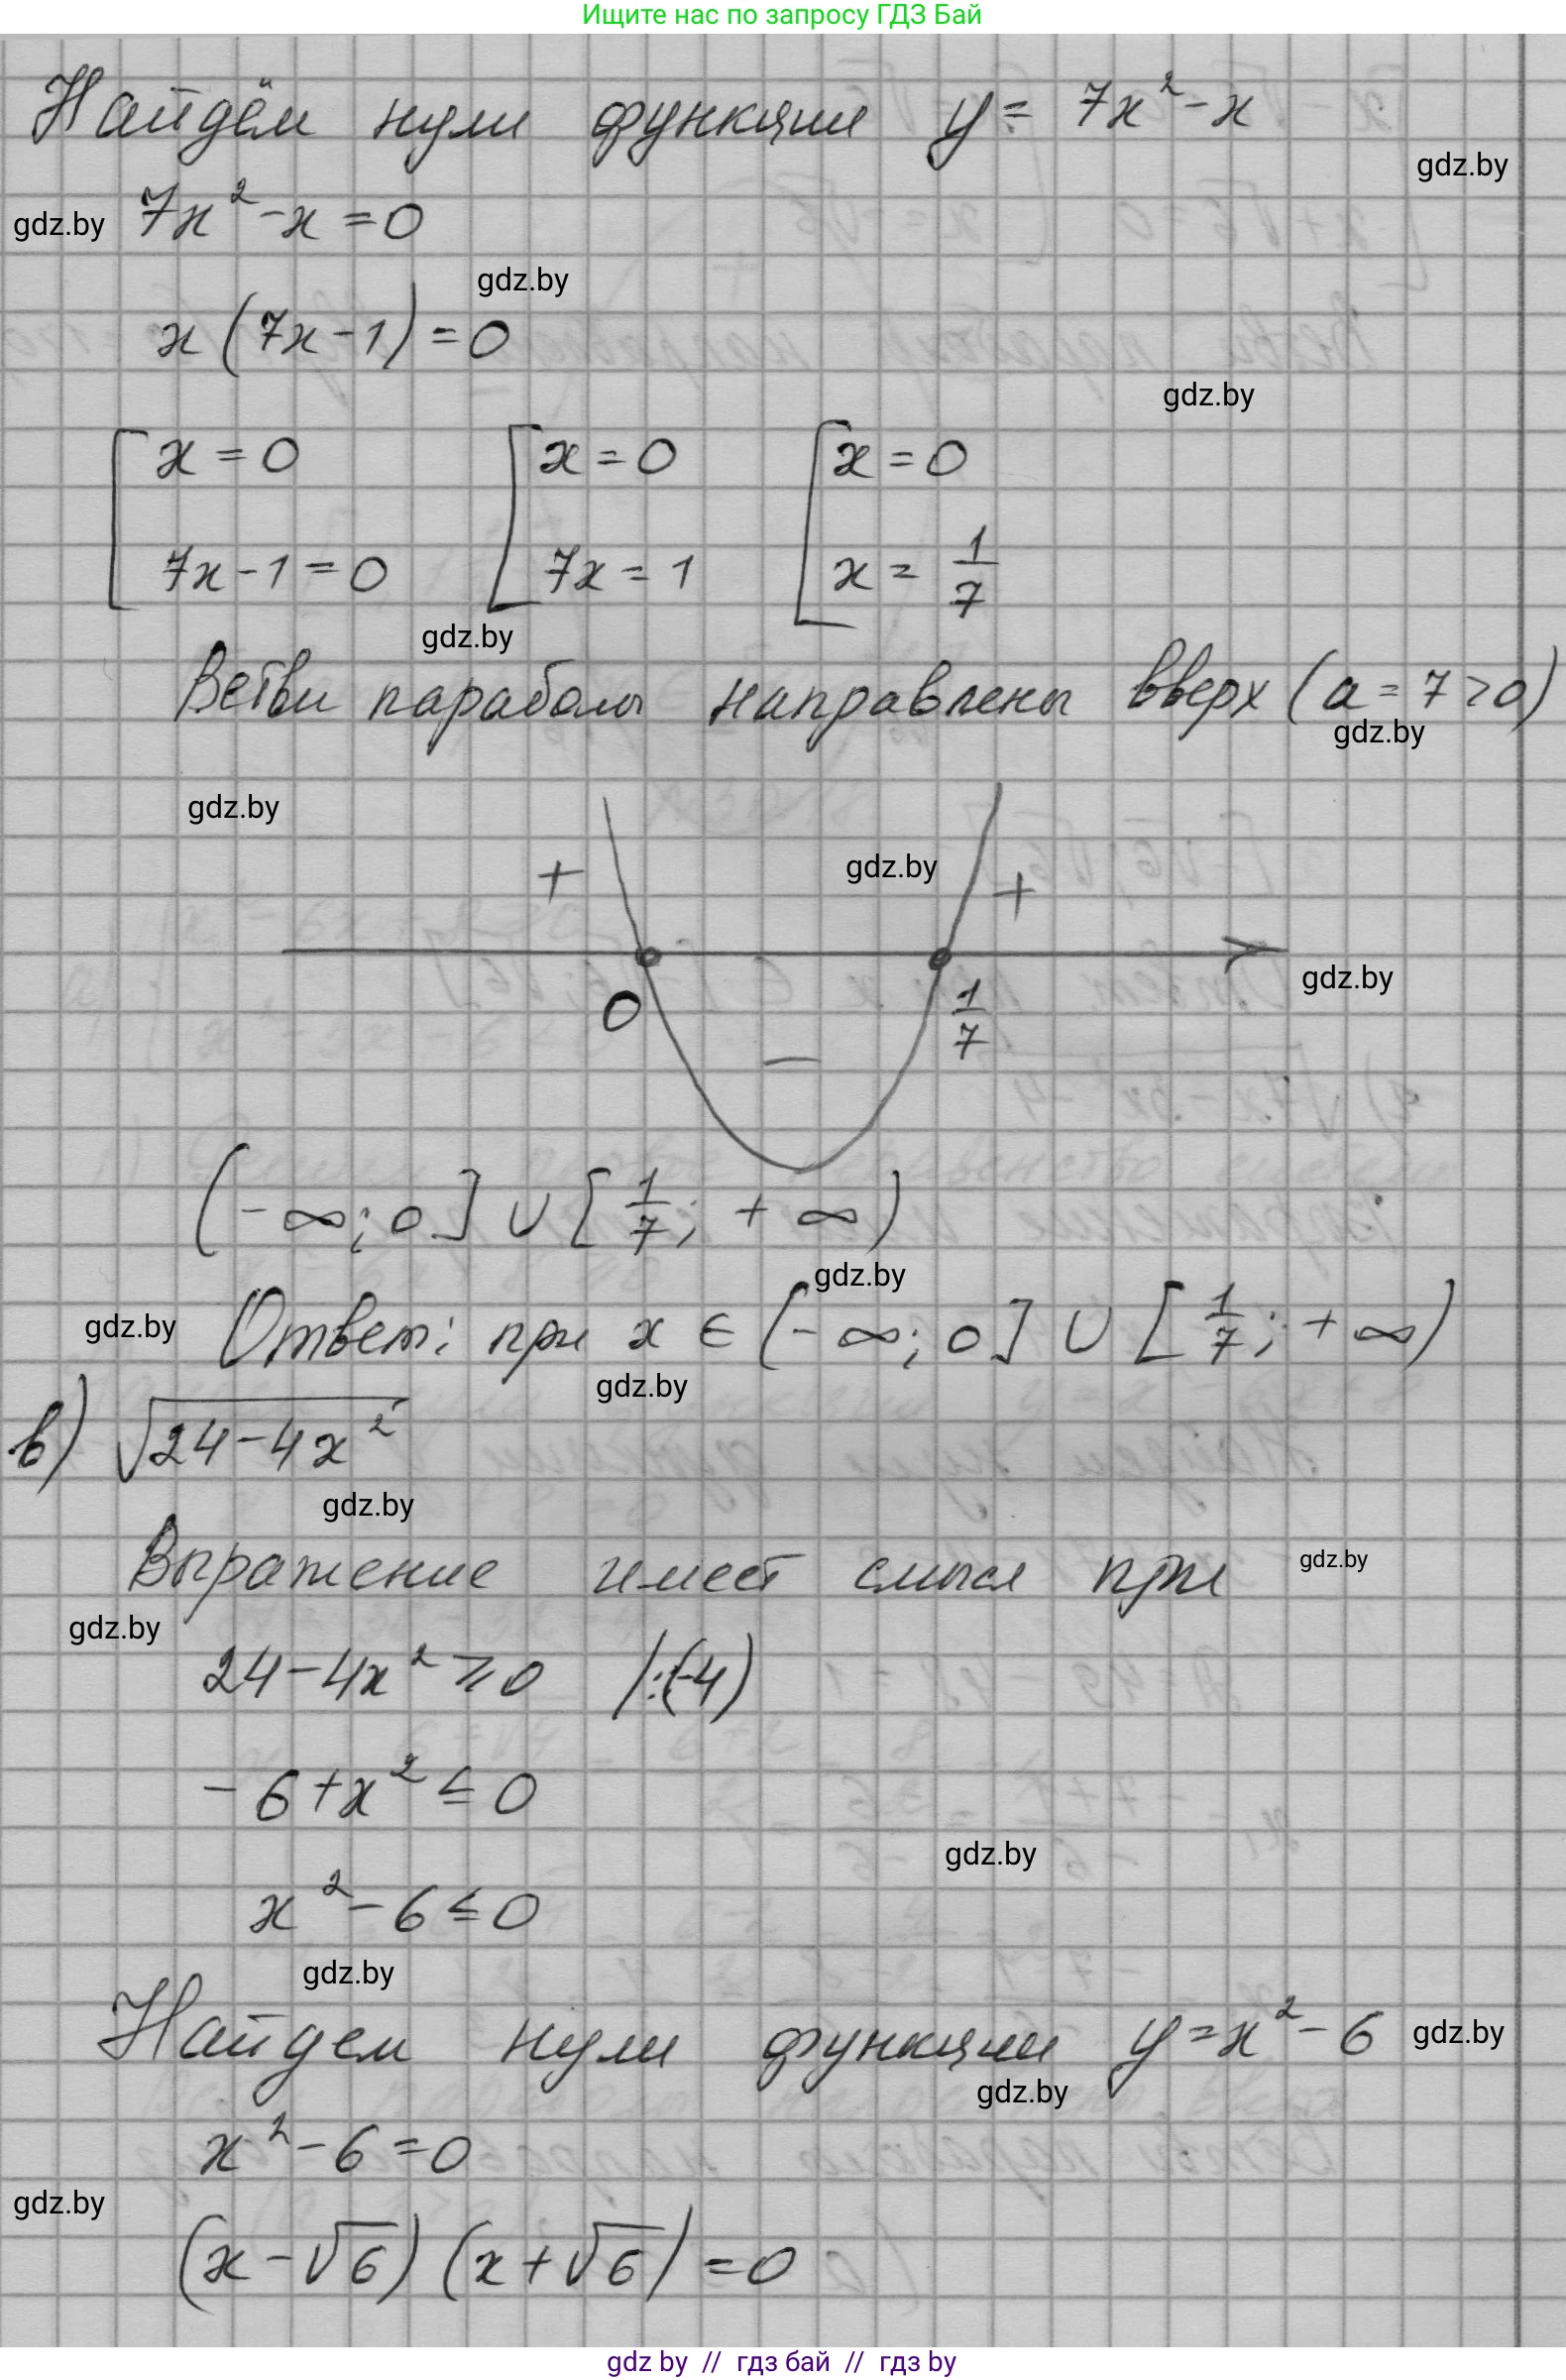 Ищите нас по запросу ГДЗ Бай
Найдём нули функции y = 7x² - x
gdz.by
gdz.by 7x² - x = 0
gdz.by
x(7x - 1) = 0
gdz.by
[ x = 0 [ x = 0 [ x = 0
7x - 1 = 0 7x = 1 x = 1/7
gdz.by
Ветви параболы направлены вверх (a = 7 > 0)
gdz.by
gdz.by
+ gdz.by +
gdz.by
0 1/7
−
(-∞; 0] ∪ [1/7; +∞)
gdz.by
gdz.by Ответ: при x ∈ (-∞; 0] ∪ [1/7; +∞)
gdz.by
в) √(24 - 4x²)
gdz.by
Выражение имеет смысл при gdz.by
gdz.by
24 - 4x² ⩾ 0 /:(-4)
-6 + x² ≤ 0
gdz.by
x² - 6 ≤ 0
gdz.by
Найдем нули функции y = x² - 6 gdz.by
gdz.by
x² - 6 = 0
gdz.by
(x - √6)(x + √6) = 0
gdz by // гдз бай // гдз by